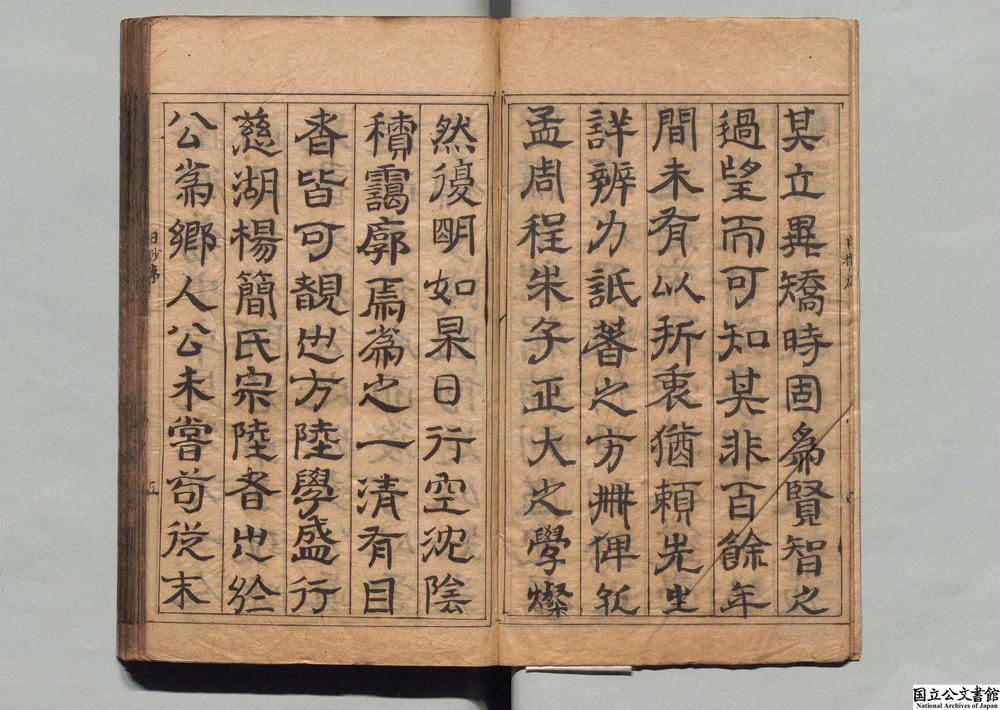 其立異矯時固為賢智之
過望而可知其非百餘年
間未有以折衷猶頼先生
詳辨力詆著之方冊俾孔
孟周程朱子正大之學燦
然復明如杲日行空沈陰
積靄廓焉為之一清有目
者皆可覩也方陸學盛行
慈湖楊簡氏宗陸者也於
公為鄉人公未嘗苟從末
日抄序
五
国立公文書館
National Archives of Japan